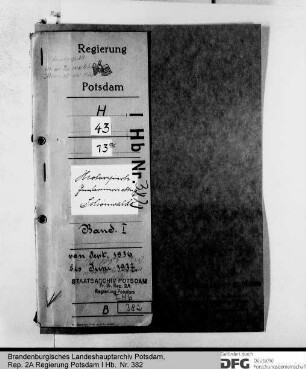 Regierung
Potsdam
H
43
13a
I Hb Nr. 382
Schönwalde
Band. I
von Sept. 1934
bis Juni 1937
STAATSARCHIV POTSDAM
Pr. Br. Rep. 2A
Regierung Potsdam
I Hb
B 382
Brandenburgisches Landeshauptarchiv Potsdam,
Rep. 2A Regierung Potsdam I Hb, Nr. 382
Gefördert durch
DFG Deutsche
Forschungsgemeinschaft